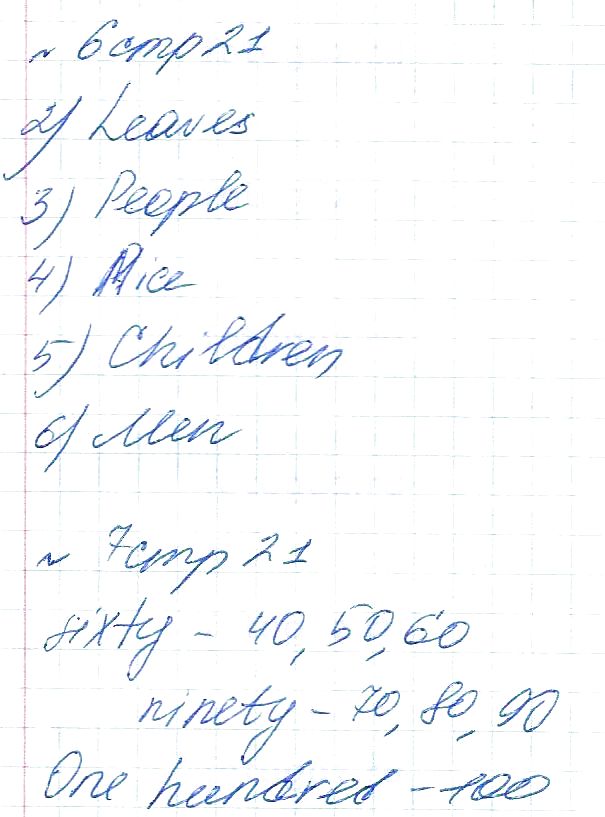 ~ 6 стр 21
2) Leaves
3) People
4) Mice
5) Children
6) Men
~ 7 стр 21
sixty - 40, 50, 60
ninety - 70, 80, 90
One hundred - 100